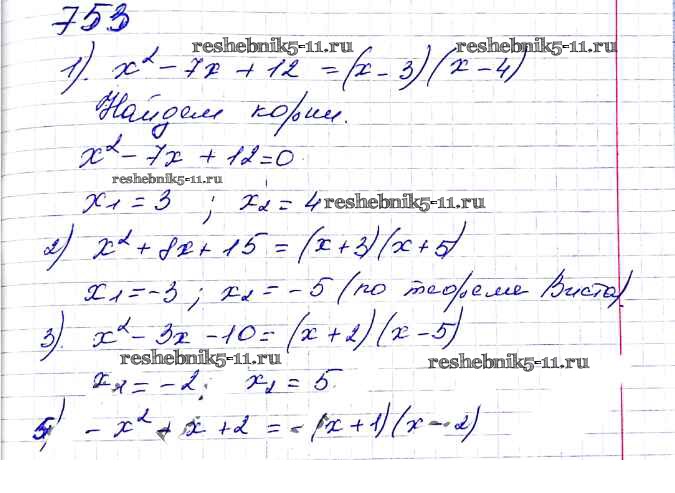 753
reshebnik5-11.ru reshebnik5-11.ru
1). x² - 7x + 12 = (x - 3)(x - 4)
Найдем корни.
x² - 7x + 12 = 0
reshebnik5-11.ru
x1 = 3 ; x2 = 4 reshebnik5-11.ru
2) x² + 8x + 15 = (x + 3)(x + 5)
x1 = -3 ; x2 = -5 (по теореме Виета).
3). x² - 3x - 10 = (x + 2)(x - 5)
reshebnik5-11.ru reshebnik5-11.ru
x1 = -2; x2 = 5.
5) - x² + x + 2 = - (x + 1)(x - 2)